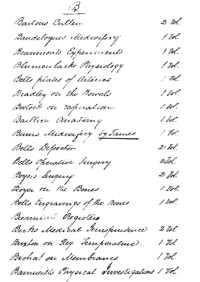 B
Bartons Cullen 2 Vol.
Baudelogues Midwifery 1 Vol.
Beaumonts Experiments 1 Vol.
Blumenbachs Physiology 1 Vol.
Bells plates of Arteries 1 Vol.
Bradley on the Bowels 1 Vol.
Bostock on respiration 1 Vol.
Baillies Anatomy 1 Vol.
Burns Midwifery by James 1 Vol.
Bells Dissector 2 Vol.
Bells Operative Surgery 2 Vol.
Boyers Surgery 2 Vol.
Boyer on the Bones 1 Vol.
Bells Engravings of the Bones 1 Vol.
Register
Becks Medical Jurisprudence 2 Vol.
on Temperature. 1 Vol.
Bichat on Membranes 1 Vol.
Physical Investigations 1 Vol.